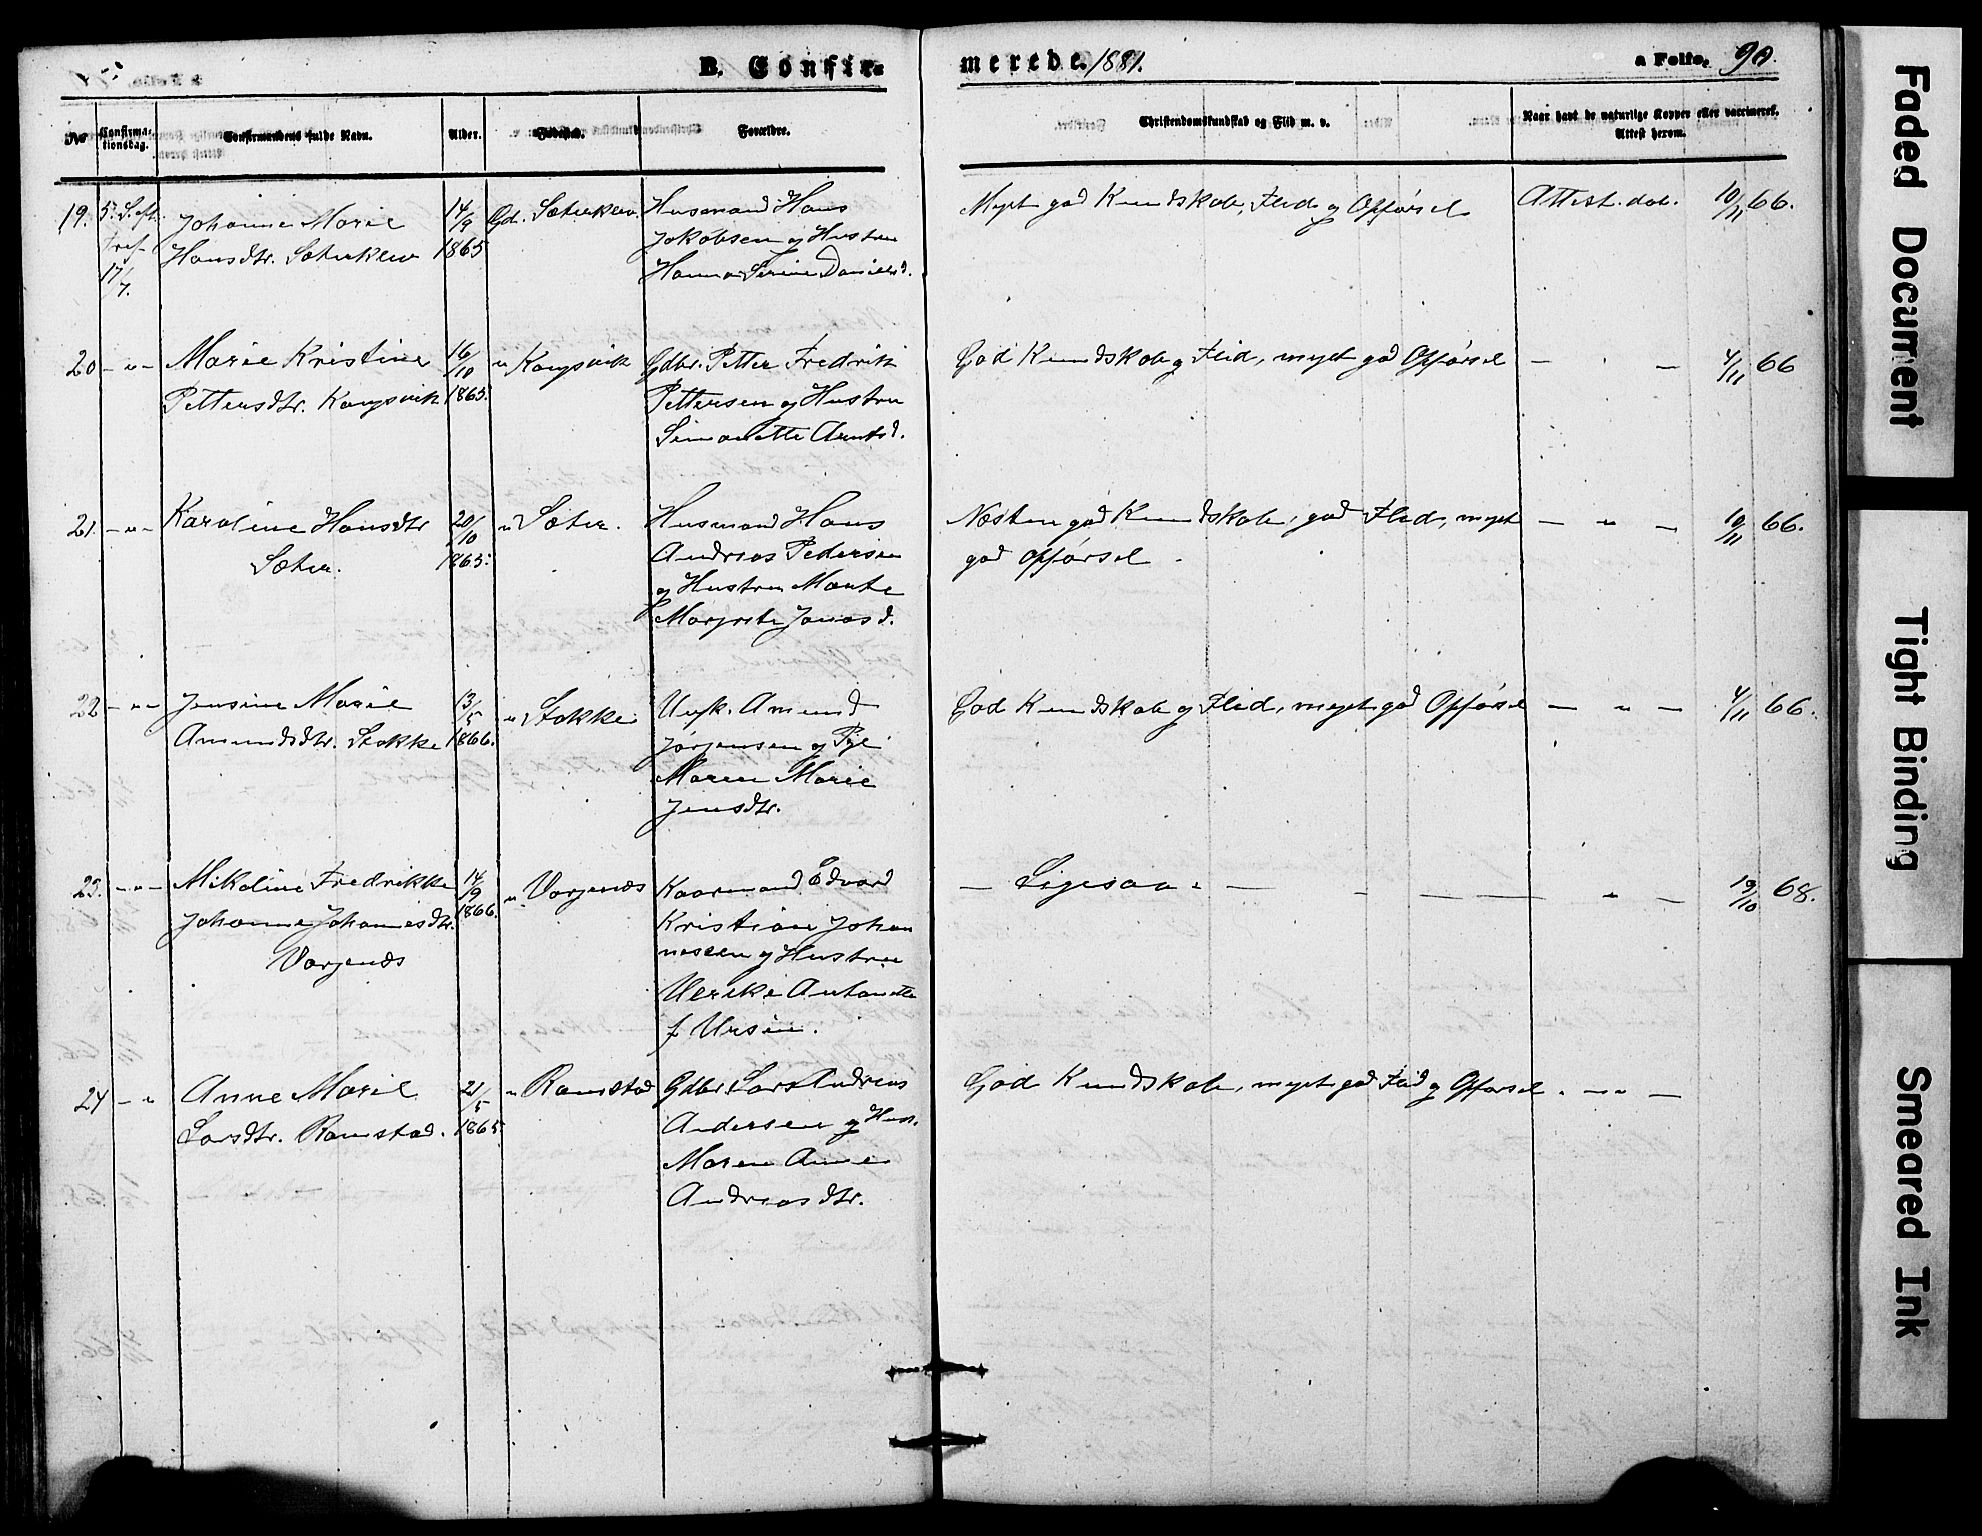 B. Confir-
merede. 1881.
a Folio. 90.
No
Confirma-
tionsdag.
Confirmandens fulde Navn.
Alder.
Fødested.
Forældre.
Christendomskundskab og Flid m. v.
Naar havt de naturlige Kopper eller vaccineret.
Attest herom.
19.
5. S. eft.
Tref.
17/7.
Johanne Marie
Hansdtr. Sæterklev
14/9
1865
Gd. Sæterklev
Husmand Hans
Jakobsen og Hustru
Hanna Serine Daniels d.
Myet god Kundskab, Flid og Opførsel
Attest. dat. 10/11 66.
20 - " -
Marie Kristine
Pettersdtr. Kongsvik
16/10
1865.
" Kongsvik
Gdbr. Petter Fredrik
Pettersen og Hustru
Simonette Arntsd.
God Kundskab og Flid, myet god Opførsel
- " - 4/11 66
21. - " -
Karoline Hansdtr
Sæter.
20/10
1865.
" Sæter.
Husmand Hans
Andreas Pedersen
og Hustru
Margrete Jonasd.
Næsten god Kundskab, god Flid, myet
god Opførsel.
- " - 10/11 66.
22 - " -
Jensine Marie
Amundsdtr. Stokke
13/5
1866.
" Stokke
Ungk. Amund
Jørgensen og Pge
Maren Marie
Jensdtr.
God Kundskab og Flid, myet god Opførsel
- " - 4/11 66.
23. - " -
Mikoline Fredrikke
Johanne Johannesdtr.
14/9
1866.
Kaarmand Edvard
Kristian Johan
nessen og Hustru
Ulrike Antonette
f Ursin.
- Ligesaa. - - - - " - 19/10 68.
24 - "
Anne Marie
Larsdtr. Ramstad.
21/5
1865.
" Ramstad
Gdbr. Lars Andreas
Andersen og Hust.
Maren Anne
Andreasdtr.
God Kundskab, myet god Flid og Opførsel. - " -
Faded Document
Tight Binding
Smeared Ink